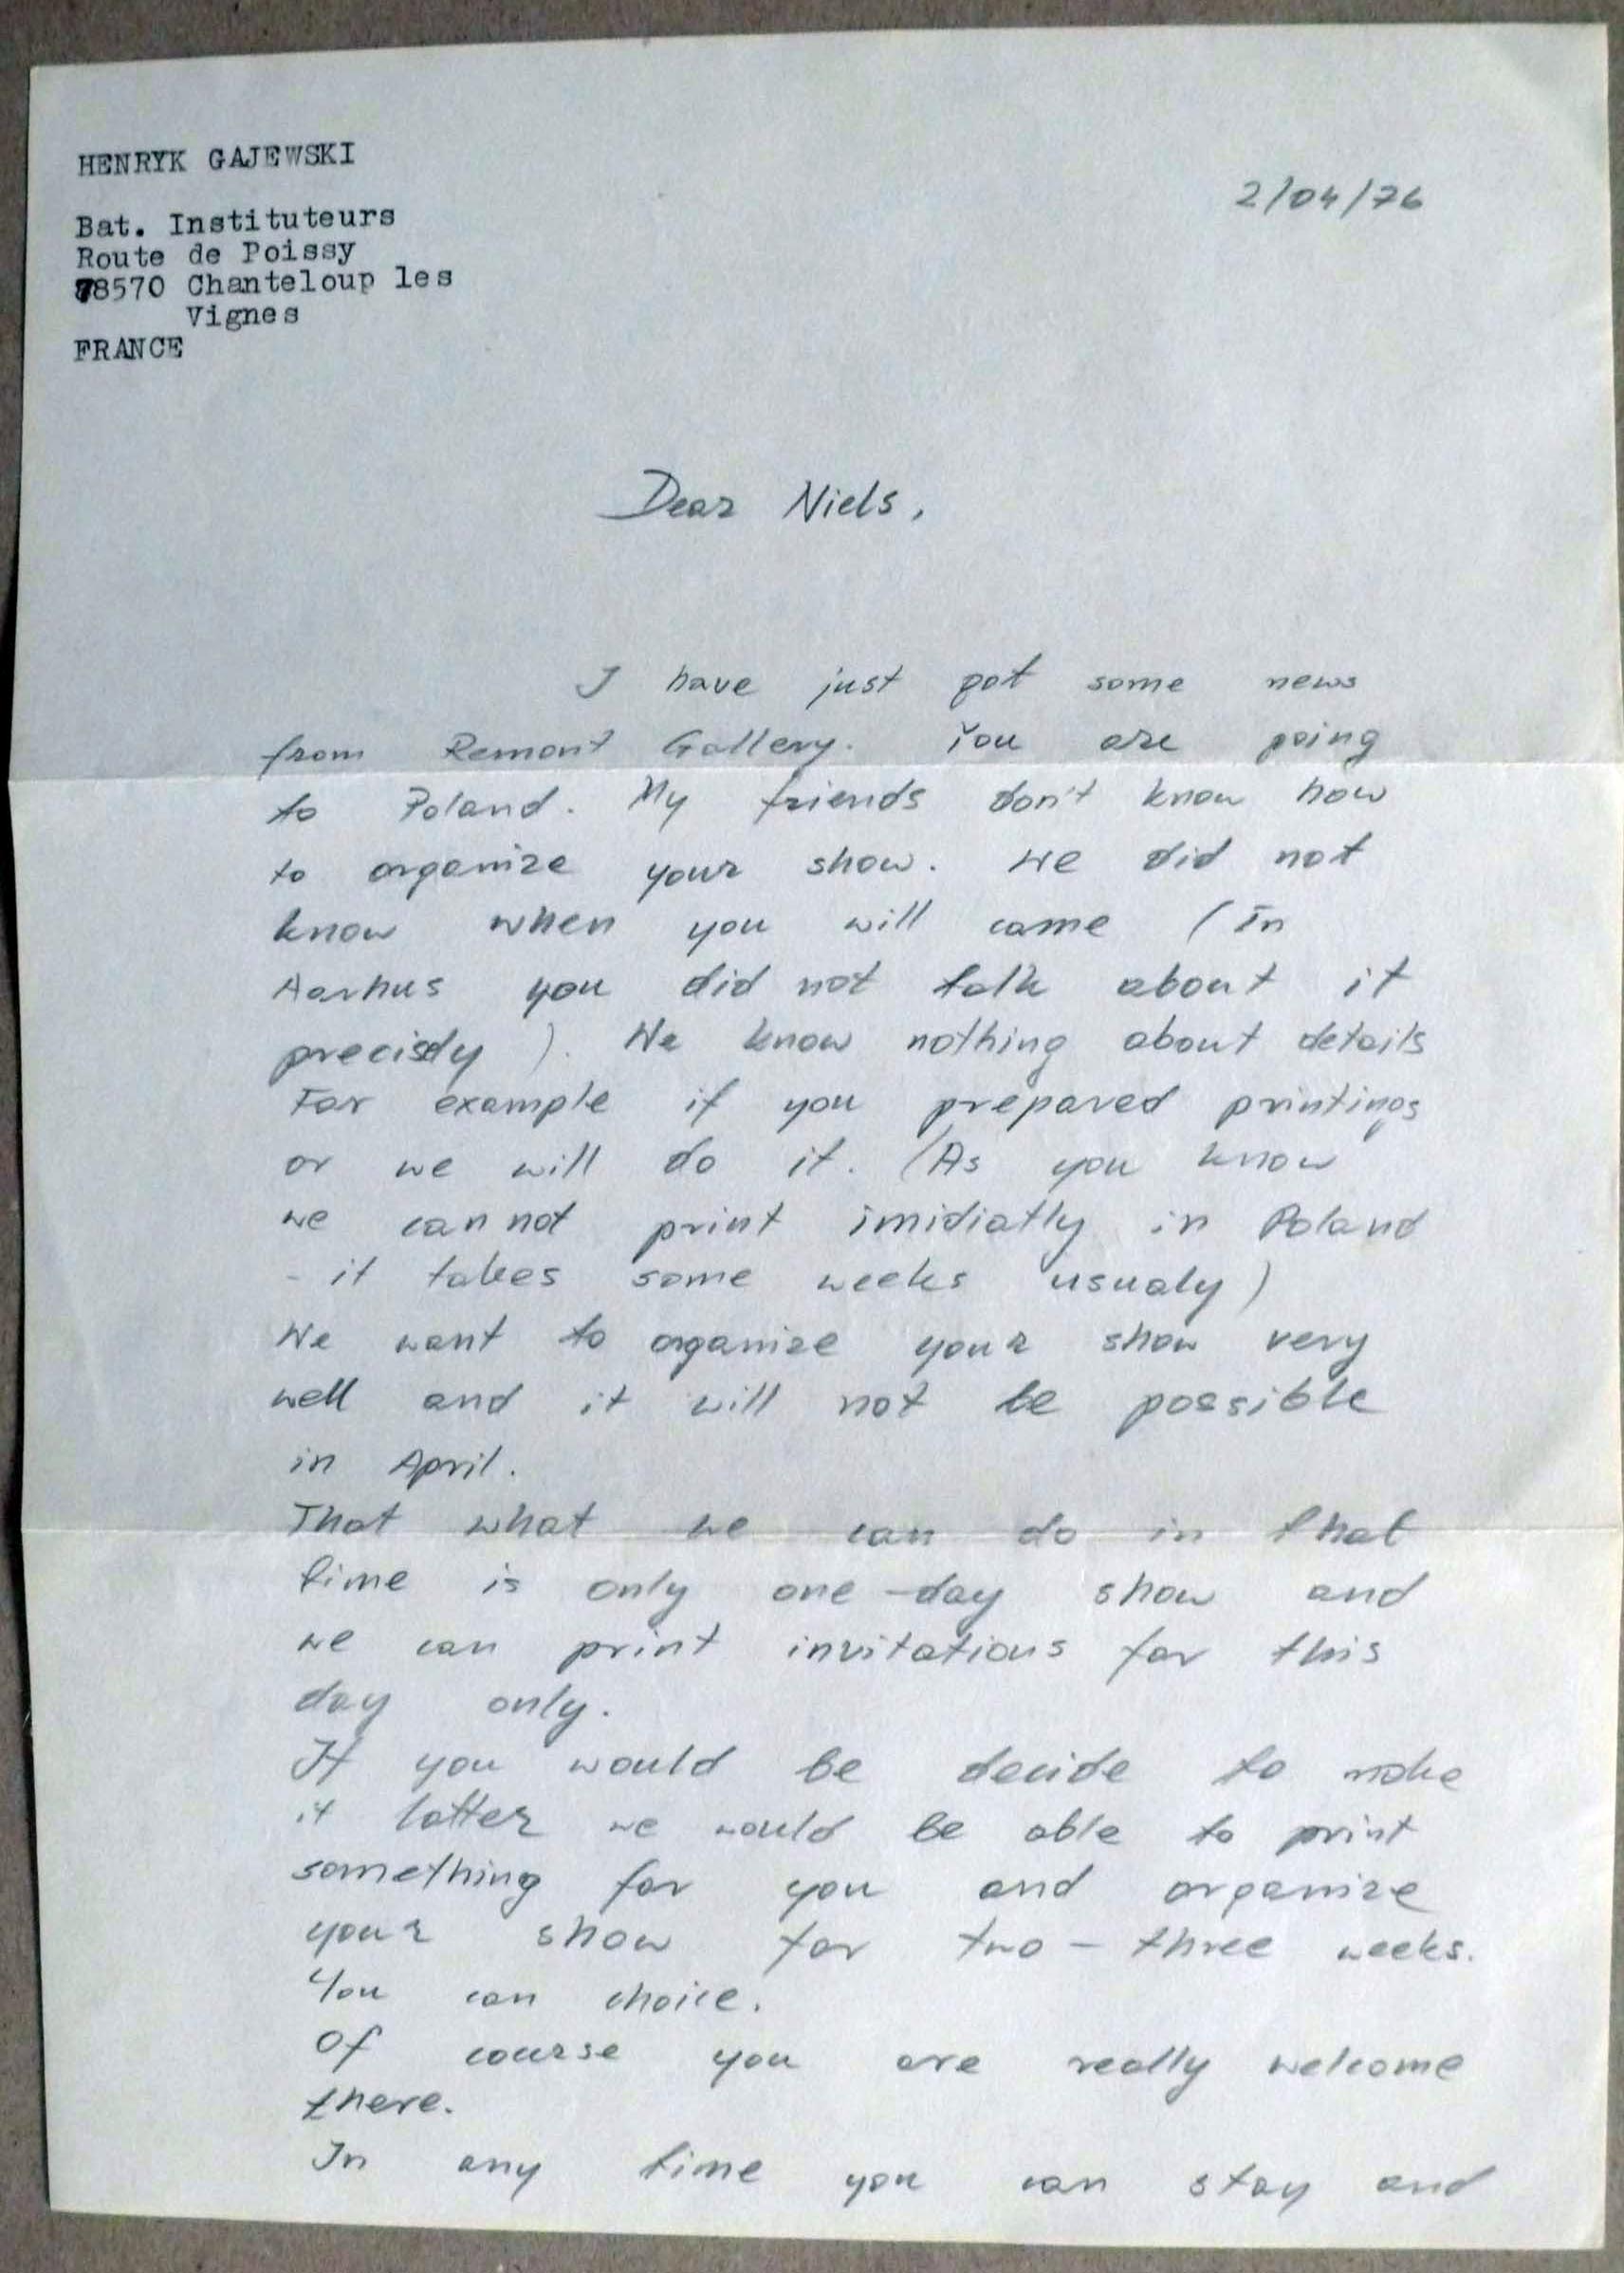 HENRYK GAJEWSKI
Bat. Instituteurs
Route de Poissy
78570 Chanteloup les
Vignes
FRANCE
2/04/76
Dear Niels,
I have just got some news
from Remont Gallery. You are going
to Poland. My friends don't know how
to organize your show. We did not
know when you will come (In
Aarhus you did not talk about it
precisely ). We know nothing about details
For example if you prepared printings
or we will do it. (As you know
we can not print imidiatly in Poland
- it takes some weeks usualy)
We want to organize your show very
well and it will not be possible
in April.
That what we can do in that
time is only one-day show and
we can print invitations for this
day only.
If you would be decide to make
it latter we would be able to print
something for you and organize
your show for two - three weeks.
You can choice.
Of course you are really welcome
there.
In any time you can stay and